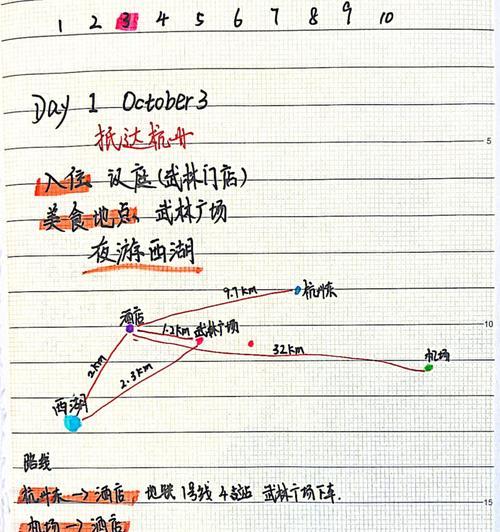 1 2 3 4 5 6 7 8 9 10
Day 1 October 3
抵达杭州
5
入住: 议庭(武林门店)
美食地点: 武林广场
夜游西湖
9.7km 杭州东
酒店 1.2km 武林广场
10
2km 2.3km 32km 机场
西湖
路线
杭州东 → 酒店 地铁 1号线 4站 武林广场下车.
15
机场 → 酒店